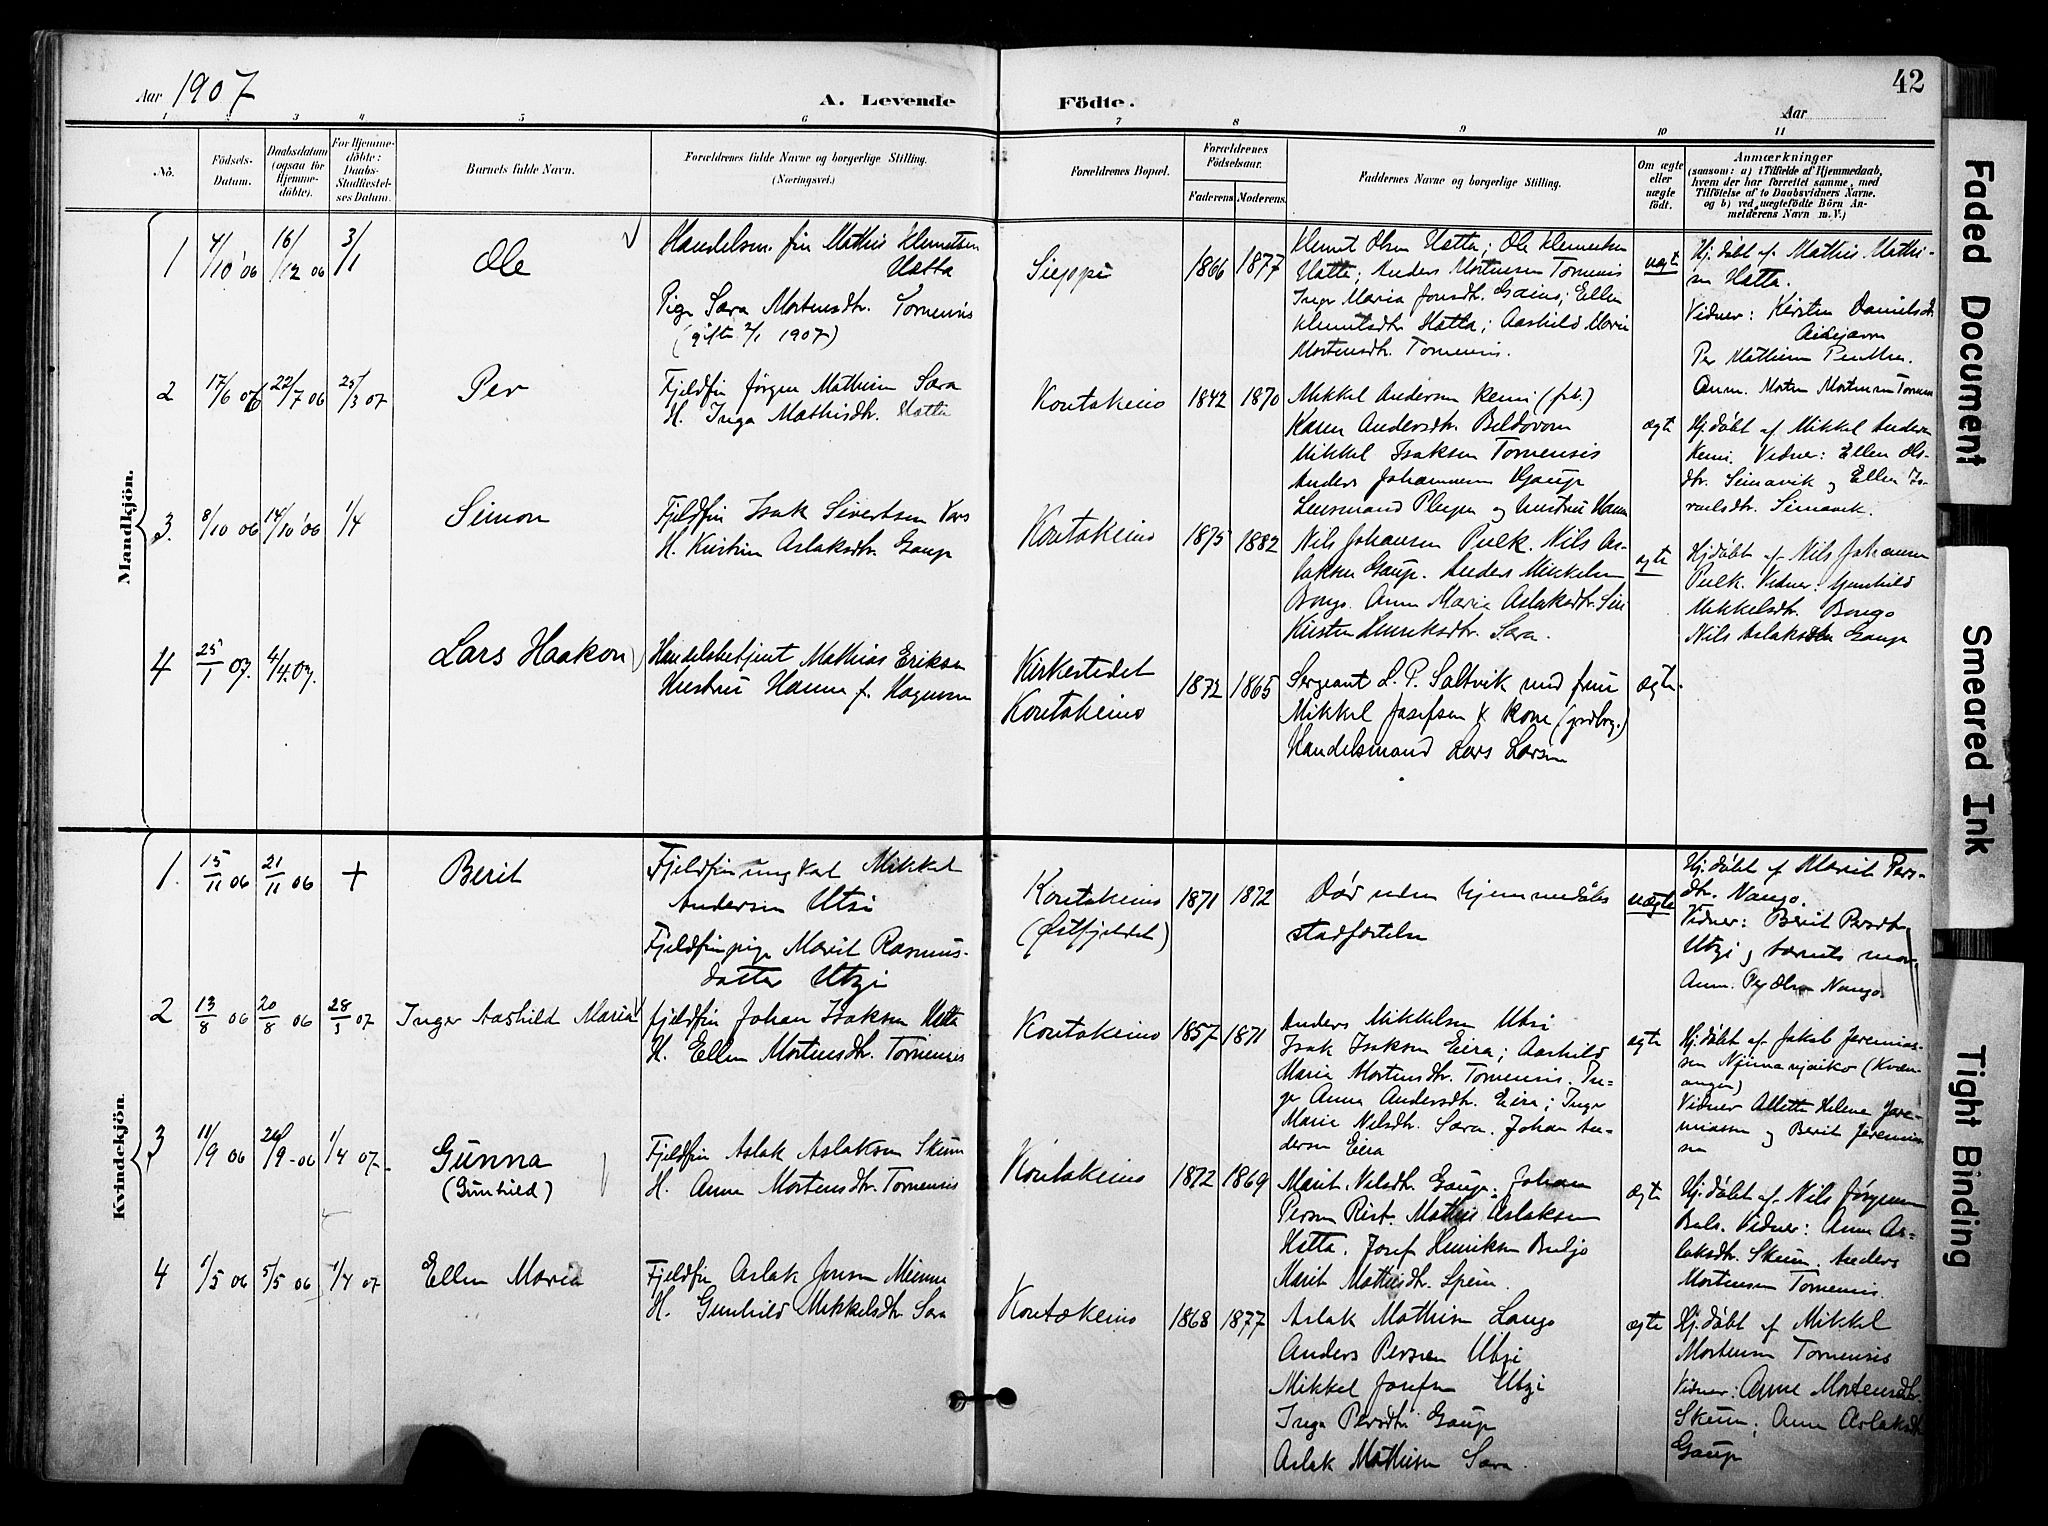 42
Aar 1907
A. Levende Födte.
Aar
1 2 3 4 5 6 7 8 9 10 11
Nô.
Födsels-Datum.
Daabsdatum (ogsaa for Hjemme-döbte).
For Hjemme-döbte: Daabs-Stadfæstel-ses Datum.
Barnets fulde Navn.
Forældrenes fulde Navne og borgerlige Stilling.
(Næringsvei.)
Forældrenes Bopæl.
Forældrenes Födselsaar.
Faderens Moderens.
Faddernes Navne og borgerlige Stilling.
Om ægte eller uægte födt.
Anmærkninger
(saasom: a) i Tilfælde af Hjemmedaab, hvem der har forrettet samme, med Tilföielse af to Daabsvidners Navne, og b) ved uægtefödte Börn An-melderens Navn m. V.)
Mandkjön.
1 4/10 06 16/12 06 3/1 Ole
Handelsm. fin Mathis Klemetsen Hatta
Pige Sara Mortensdtr. Tornensis
(gifte 2/1 1907)
Sieppi 1866 1877
Klemt Olsen Hatta; Ole Klemetsen
Hatta; Anders Mortensen Tornensis
Inger Maria Jonsdtr. Gaino; Ellen
Klemetsdtr Hatta; Aashild Maria
Mortensdtr. Tornensis.
uægt
Hj. døbt af Mathis Mathi-
sen Hatta.
Vidner: Kirsten Danielsd
Per Mathisen
Anm. Morten Mortensen Tornens
2 17/6 06 22/7 06 25/3 07 Per
Fjeldfin Jørgen Mathisen Sara
H. Inga Mathisdtr. Hatta
Koutokeino 1842 1870
Mikkel Andersen Kemi
Karen Andersdtr. Beldovom
Mikkel Isaksen Tornensis
Anders Johannesen Gaup
Lensmand og hustru Hanna
ægte
Hj. døbt af Mikkel Anders
Kemi. Vidner: Ellen Ols-
dtr. Simavik og Ellen Is-
raelsdtr. Simavik.
3. 8/10 06 14/10 06 1/4 Simon
Fjeldfin Isak Sivertsen Vars
H. Kirstin Aslaksdtr. Gaup
Koutokeino 1875 1882
Nils Johansen Pulk. Nils As-
laksen Gaup. Anders Mikkelsen
Bongo. Anne Maria Aslaksdtr. Siri
Kirsten Henriksdtr. Sara.
ægte
Hj. døbt af Nils Johannesen
Pulk. Vidner: Gunhild
Mikkelsdtr. Bongo
Nils Aslaksen Gaup
4 25/1 07. 4/4.07. Lars Haakon
Handelsbetjent Mathias Eriksen
Hustru Hanna f. Hagensen
Kirkestedet
Koutokeino
1872 1865
Sergeant L. P. Saltvik med frue
Mikkel Josefsen & kone (gdbrg.)
Handelsmand Lars Larsen
ægte.
Kvindekjön.
1. 15/11 06 21/11 06 + Berit
Fjeldfinungkarl Mikkel
Andersen Utsi
Fjeldfinpige Marit Rasmus-
datter Utzi
Koutokeino
(Østfjeldet)
1871 1872
Død uden hjemmedåbs
stadfæstelse
uægte
Hj. døbt af Marit Pers-
dtr. Nango.
Vidner: Berit Persdtr.
Utzi og barnets mor.
Anm. Per Olsen Nango
2 13/8 06 20/8 06 28/3 07 Inger Aashild Maria
fjeldfin Johan Isaksen Hatta
H. Ellen Mortensdtr. Tornensis
Koutokeino 1857 1871
Anders Mikkelsen Utsi
Isak Isaksen Eira; Aashild
Maria Mortensdtr. Tornensis. In-
ger Anna Andersdtr. Eira; Inger
Marie Nilsdtr. Sara. Johan An-
dersen Eira
ægte
Hj. døbt af Jakob Jeremias-
sen (Kvæn-
angen)
Vidner Allette Helene Jere-
miassen og Berit Jeremias-
sen
3 11/9 06 26/9-06 1/4 07- Gunna
(Gunhild)
Fjeldfin Aslak Aslaksen Skum
H. Anne Mortensdtr. Tornensis
Koutokeino 1872 1869
Marit Nilsdtr. Gaup; Johan
Persen Rist. Mathis Aslaksen
Hatta. Josef Henriksen Buljo
Marit Mathisdtr. Spein.
ægte
Hj. døbt af Nils Jørgensen
Bals. Vidner: Anne As-
laksdtr. Skum. Anders
Mortensen Tornensis.
4 1/5 06 5/5 06 1/4 07 Ellen Maria
Fjeldfin Aslak Jonsen Mienna
H. Gunhild Mikkelsdtr Sara
Koutokeino 1868 1877
Aslak Mathisen Lango
Anders Persen Utzi
Mikkel Josefsen Utzi
Inga Persdtr Gaup
Aslak Mathisen Sara.
ægte
Hj. døbt af Mikkel
Mortensen Tornensis
Vidner: Anne Mortensdtr.
Skum; Anne Aslaksdt
Gaup
Faded Document
Smeared Ink
Tight Binding